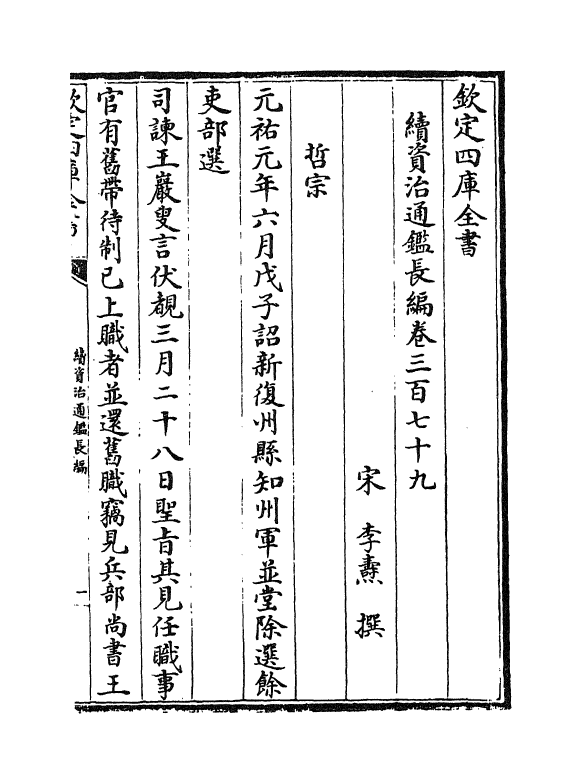 欽定四庫全書
續資治通鑑長編卷三百七十九
宋 李燾 撰
哲宗
元祐元年六月戊子詔新復州縣知州軍並堂除選餘
吏部選
司諫王巖叟言伏覩三月二十八日聖旨其見任職事
官有舊帶待制已上職者並還舊職竊見兵部尚書王
欽定四庫全書
續資治通鑑長編
一